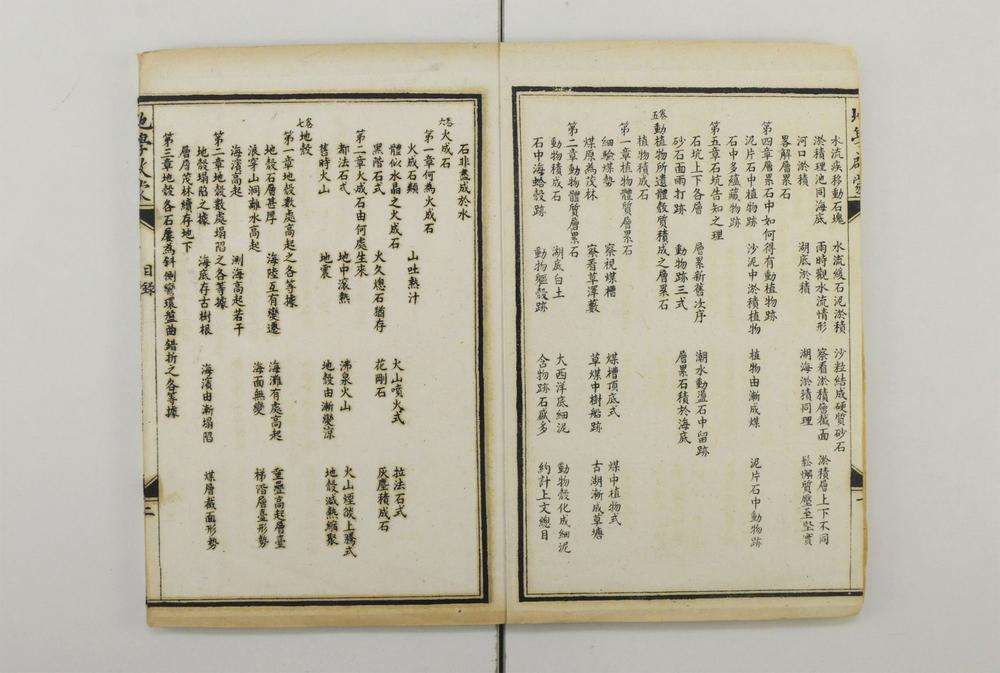 水流疾移動石塊 水流緩石泥淤積 沙粒結成硬質砂石
淤積理池同海底 兩時觀水流情形 察看淤積層截面 淤積層上下不同
河口淤積 湖底淤積 湖海淤積同理 鬆懈質壓至堅實
畧解層累石
第四章層累石中如何得有動植物跡
泥片石中植物跡 沙泥中淤積植物 植物由漸成煤 泥片石中動物跡
石中多蘊藏物跡
第五章石坑告知之理
石坑上下各層 層累新舊次序 潮水動盪石中留跡
砂石面雨打跡 動物跡三式 層累石積於海底
卷五 動植物所遺體殼質積成之層累石
植物積成石
第一章植物體質層累石
細驗煤勢 察視煤槽 煤槽頂底式 煤中植物式
煤原為茂林 察看草澤藪 草煤中樹船跡 古湖漸成草塘
第二章動物體質層累石
動物積成石 湖底白土 大西洋底細泥 動物殼化成細泥
石中海蛤殼跡 動物軀殼跡 含物跡石麻多 約計上文總目
石非盡成於水
卷六 火成石
第一章何為火成石
火成石類 山吐熱汁 火山噴火式 拉法石式
體似水晶之火成石
黑階石式 火久熄石猶存 花剛石 灰塵積成石
第二章火成石由何處生來
都法石式 地中滾熱 沸泉火山 火山煙燄上騰式
舊時火山 地震 地殼由漸變涼 地殼減熱縮聚
卷七 地殼
第一章地殼數處高起之各等據
地殼石層甚厚 海陸互有變遷 海灘有處高起 重疊高起層臺
浪穿山洞離水高起 海面無變 梯階層臺形勢
海濱高起 測海高起若干
第二章地殼數處塌陷之各等據
地殼塌陷之據 海底存古樹根 海濱由漸塌陷 煤層截面形勢
層層茂林續存地下
第三章地殼各石層為斜側彎環盤曲錯折之各等據
目錄
二